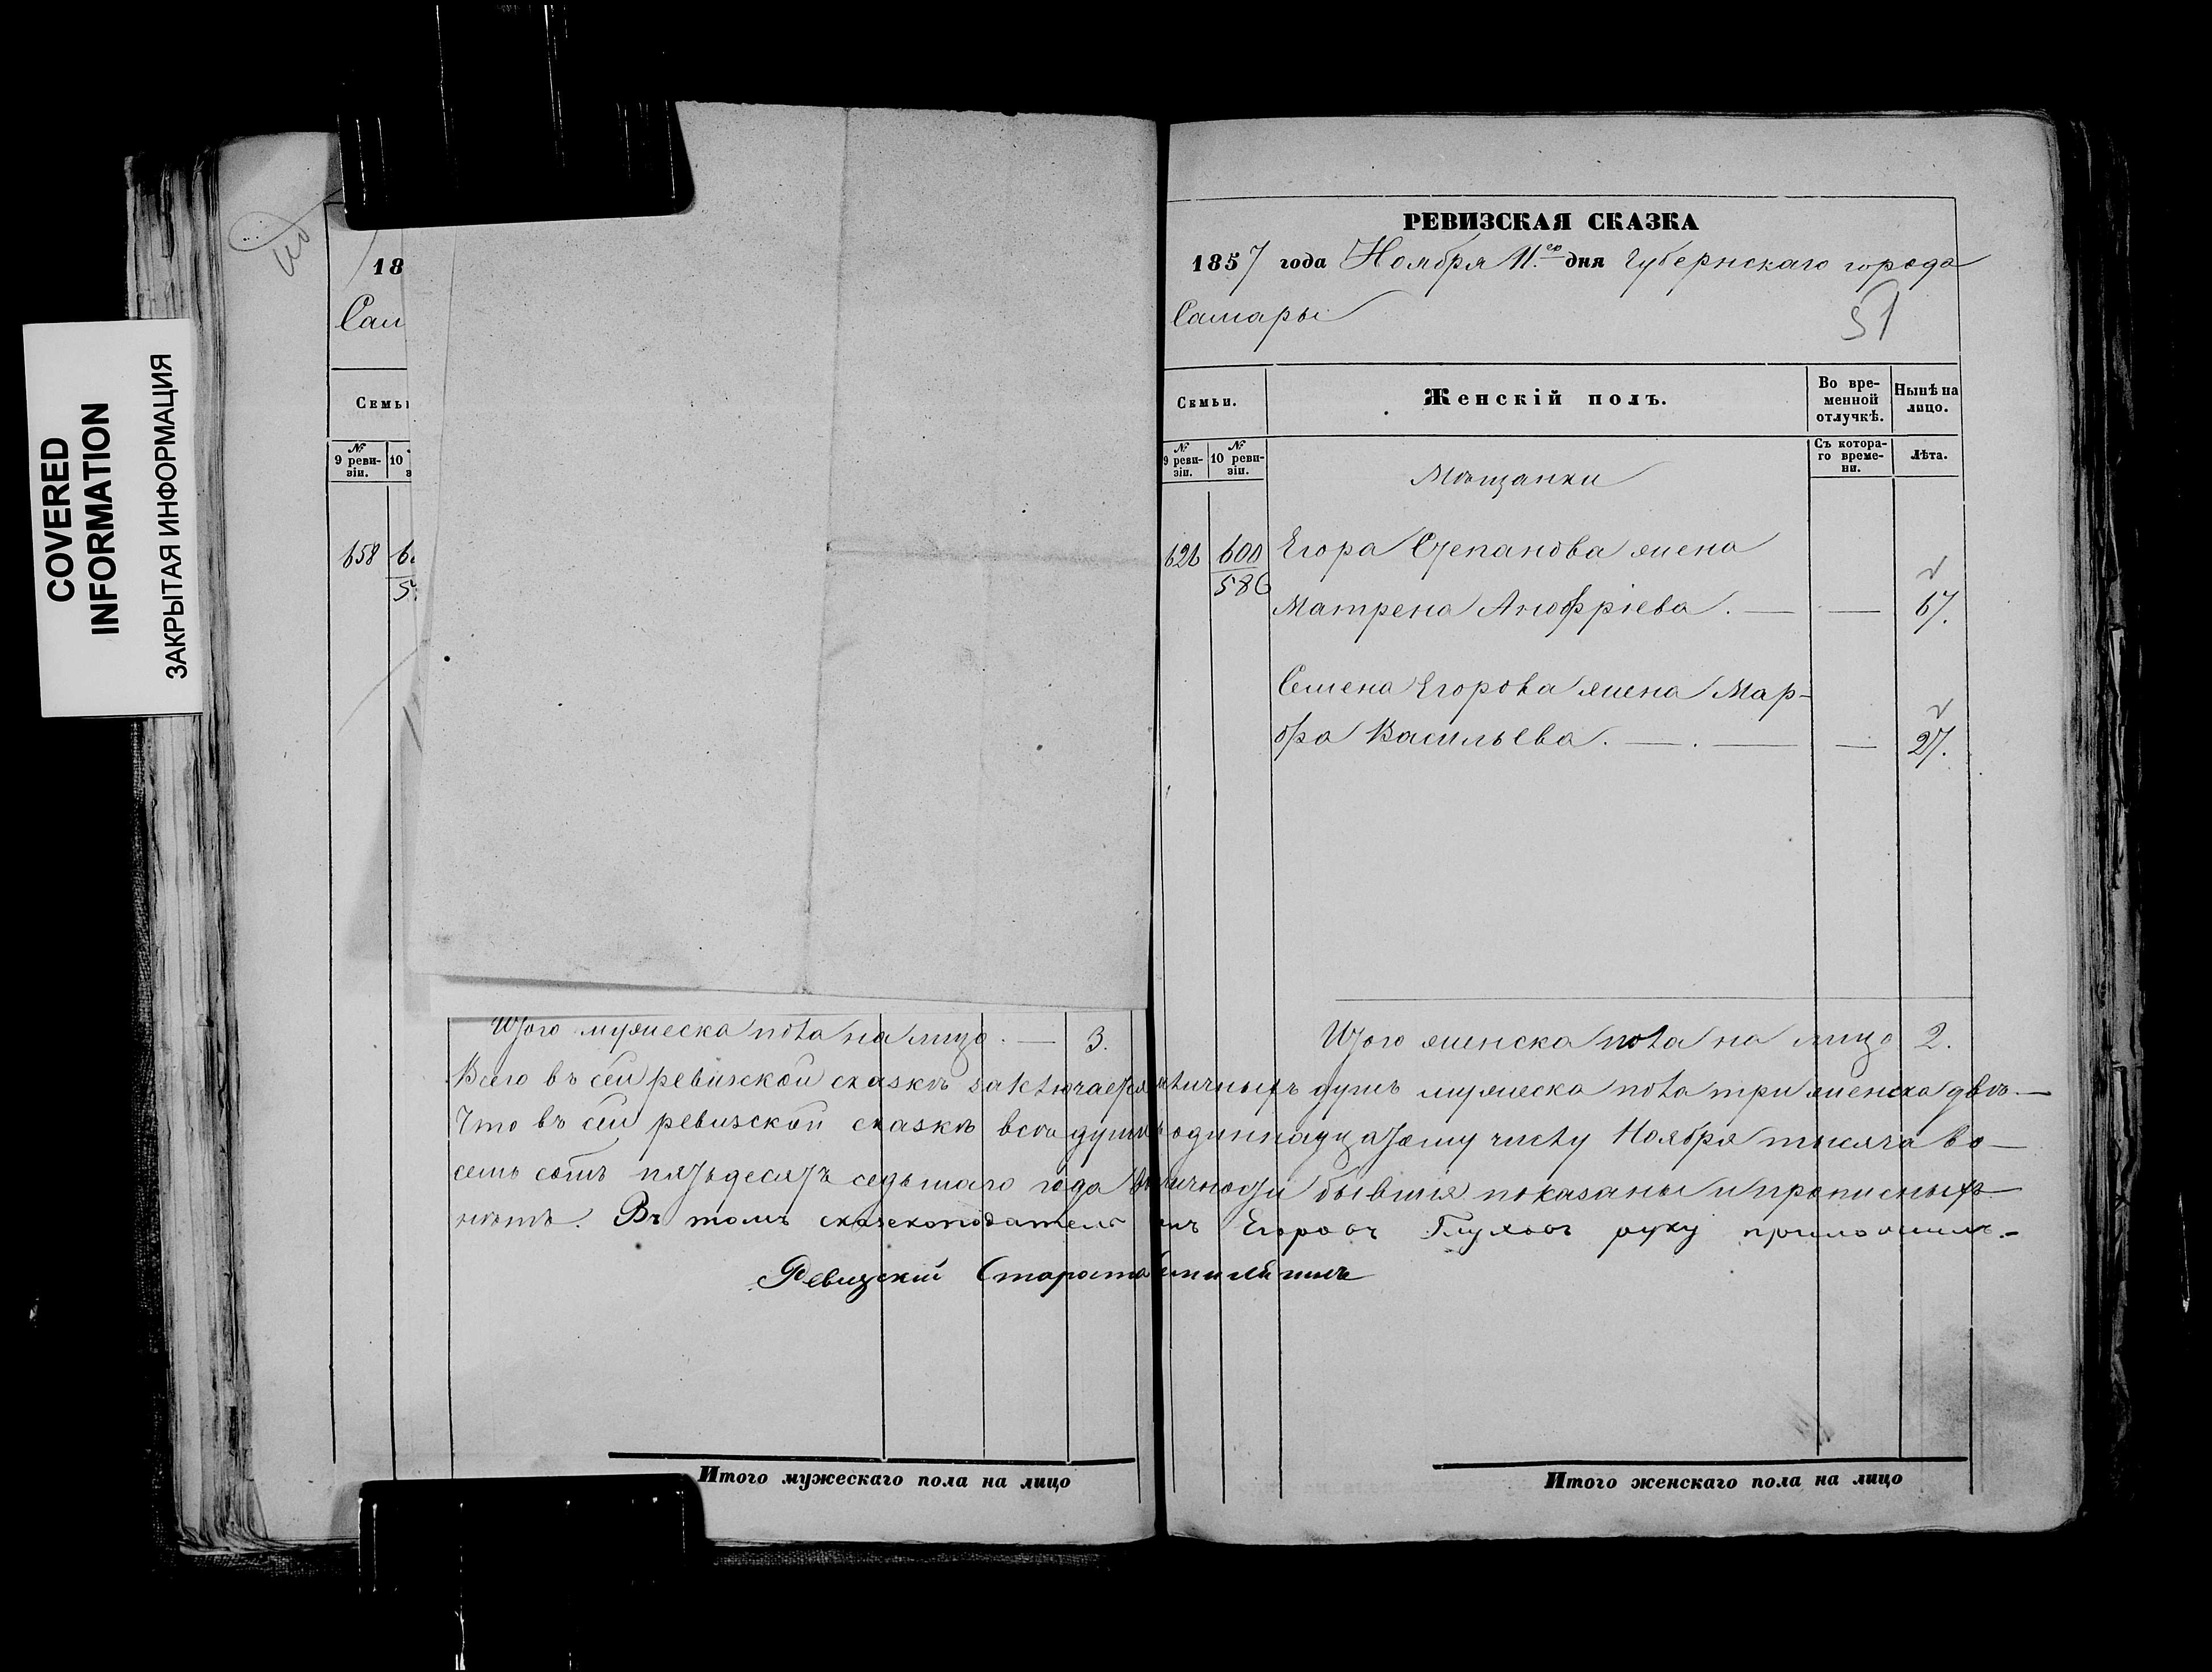 COVERED
INFORMATION
ЗАКРЫТАЯ ИНФОРМАЦИЯ
18
Сам
Семь
№
9 реви-
зіи.
10
658
Итого мужеска пола на лицо. — 3.
РЕВИЗСКАЯ СКАЗКА
1857 года Ноября 11.го дня Губернскаго города
Самары
51
Семьи.
Женскій полъ.
Во вре-
менной
отлучкѣ.
Нынѣ на
лицо.
№
9 реви-
зіи.
№
10 реви-
зіи.
Съ котора-
го време-
ни.
Лѣта.
Мѣщанки
626 600 Егора Степанова жена
586
Матрена Анофріева. — — 67.
Семена Егорова жена Мар-
фа Васильева. — . — — 27.
Итого женска пола на лицо 2.
Всего въ сей ревизской сказкѣ заключается наличныхъ душъ мужеска пола три женска двѣ. —
Что въ сей ревизской сказкѣ всѣ души къ одиннадцатому числу Ноября тысяча во-
семь сотъ пятьдесятъ седьмаго года въ наличности бывшія показаны и прописныхъ
нѣтъ. Въ томъ сказкоподатель Егоровъ Глуховъ руку приложилъ. -
Ревизскій Староста
Итого мужескаго пола на лицо
Итого женскаго пола на лицо